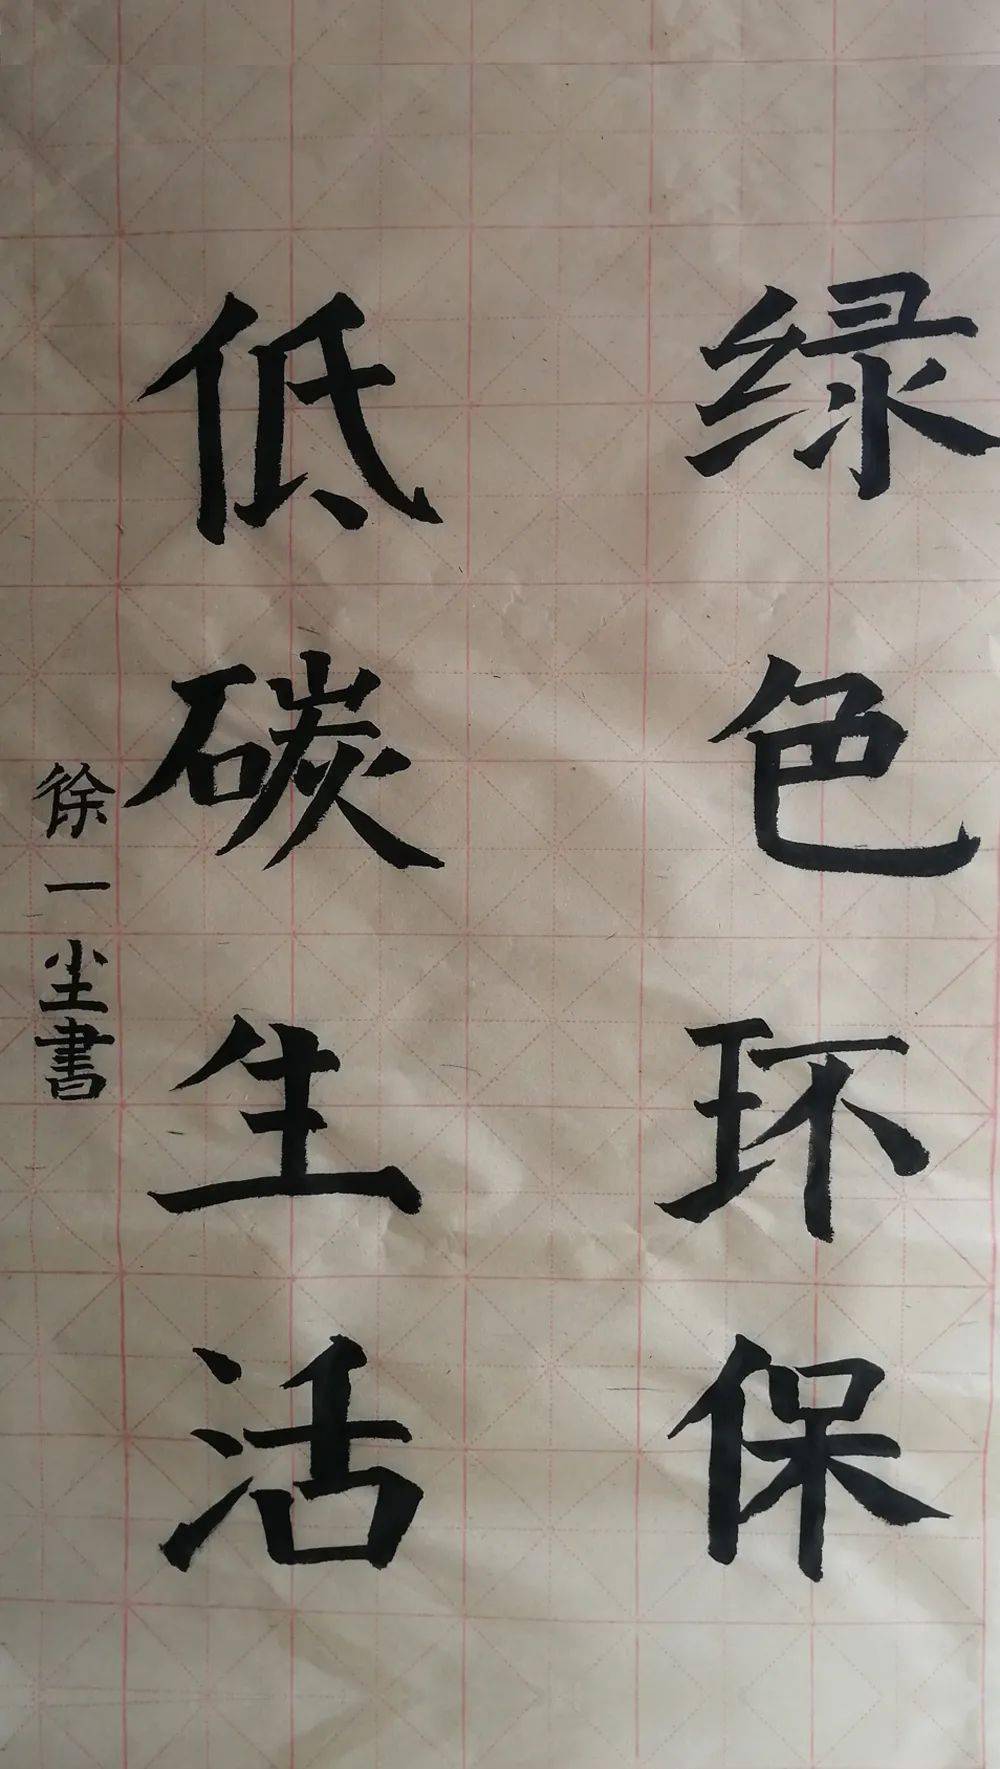 绿色环保
低碳生活
徐一尘書